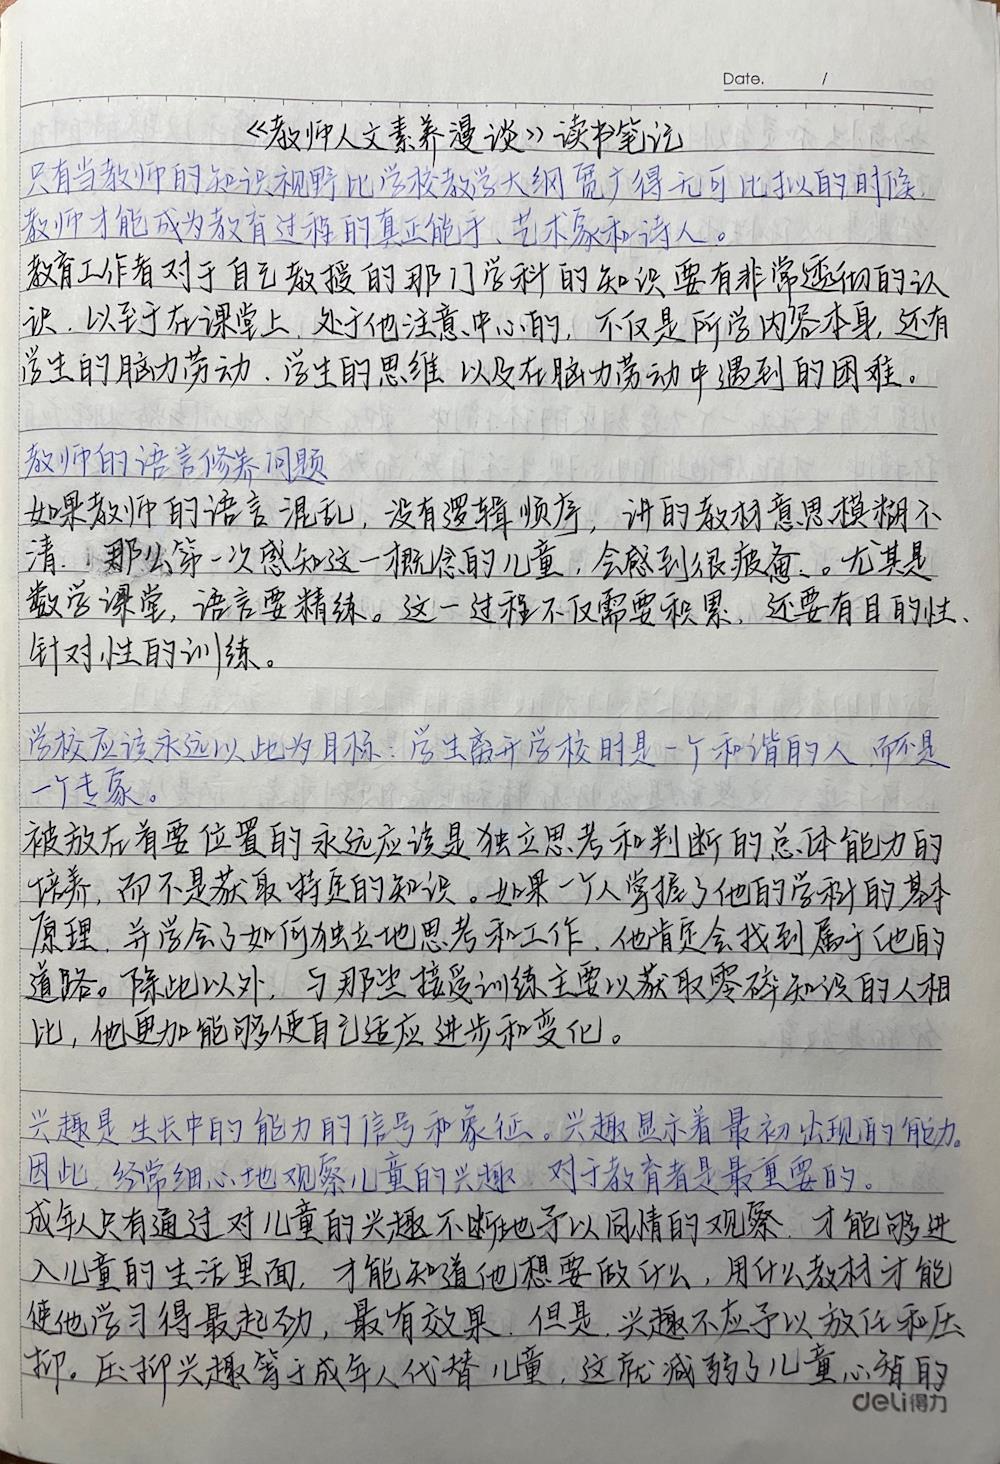 Date.        /
《教师人文素养漫谈》读书笔记
只有当教师的知识视野比学校教学大纲宽广得无可比拟的时候,
教师才能成为教育过程的真正能手、艺术家和诗人。
教育工作者对于自己教授的那门学科的知识要有非常透彻的认
识,以至于在课堂上,处于他注意中心的,不仅是所学内容本身,还有
学生的脑力劳动、学生的思维 以及在脑力劳动中遇到的困难。
教师的语言修养问题
如果教师的语言混乱,没有逻辑顺序,讲的教材意思模糊不
清,那么第一次感知这一概念的儿童,会感到很疲惫、。尤其是
数学课堂,语言要精练。这一过程不仅需要积累,还要有目的性、
针对性的训练。
学校应该永远以此为目标:学生离开学校时是一个和谐的人,而不是
一个专家。
被放在首要位置的永远应该是独立思考和判断的总体能力的
培养,而不是获取特定的知识。如果一个人掌握了他的学科的基本
原理,并学会了如何独立地思考和工作,他肯定会找到属于他的
道路。除此以外,与那些接受训练主要以获取零碎知识的人相
比,他更加能够使自己适应进步和变化。
兴趣是生长中的能力的信号和象征。兴趣显示着最初出现的能力。
因此,经常细心地观察儿童的兴趣 对于教育者是最重要的。
成年人只有通过对儿童的兴趣不断地予以同情的观察,才能够进
入儿童的生活里面,才能知道他想要做什么,用什么教材才能
使他学习得最起劲,最有效果。但是,兴趣不应予以放任和压
抑。压抑兴趣等于成年人代替儿童,这就减弱了儿童心智的
deli得力